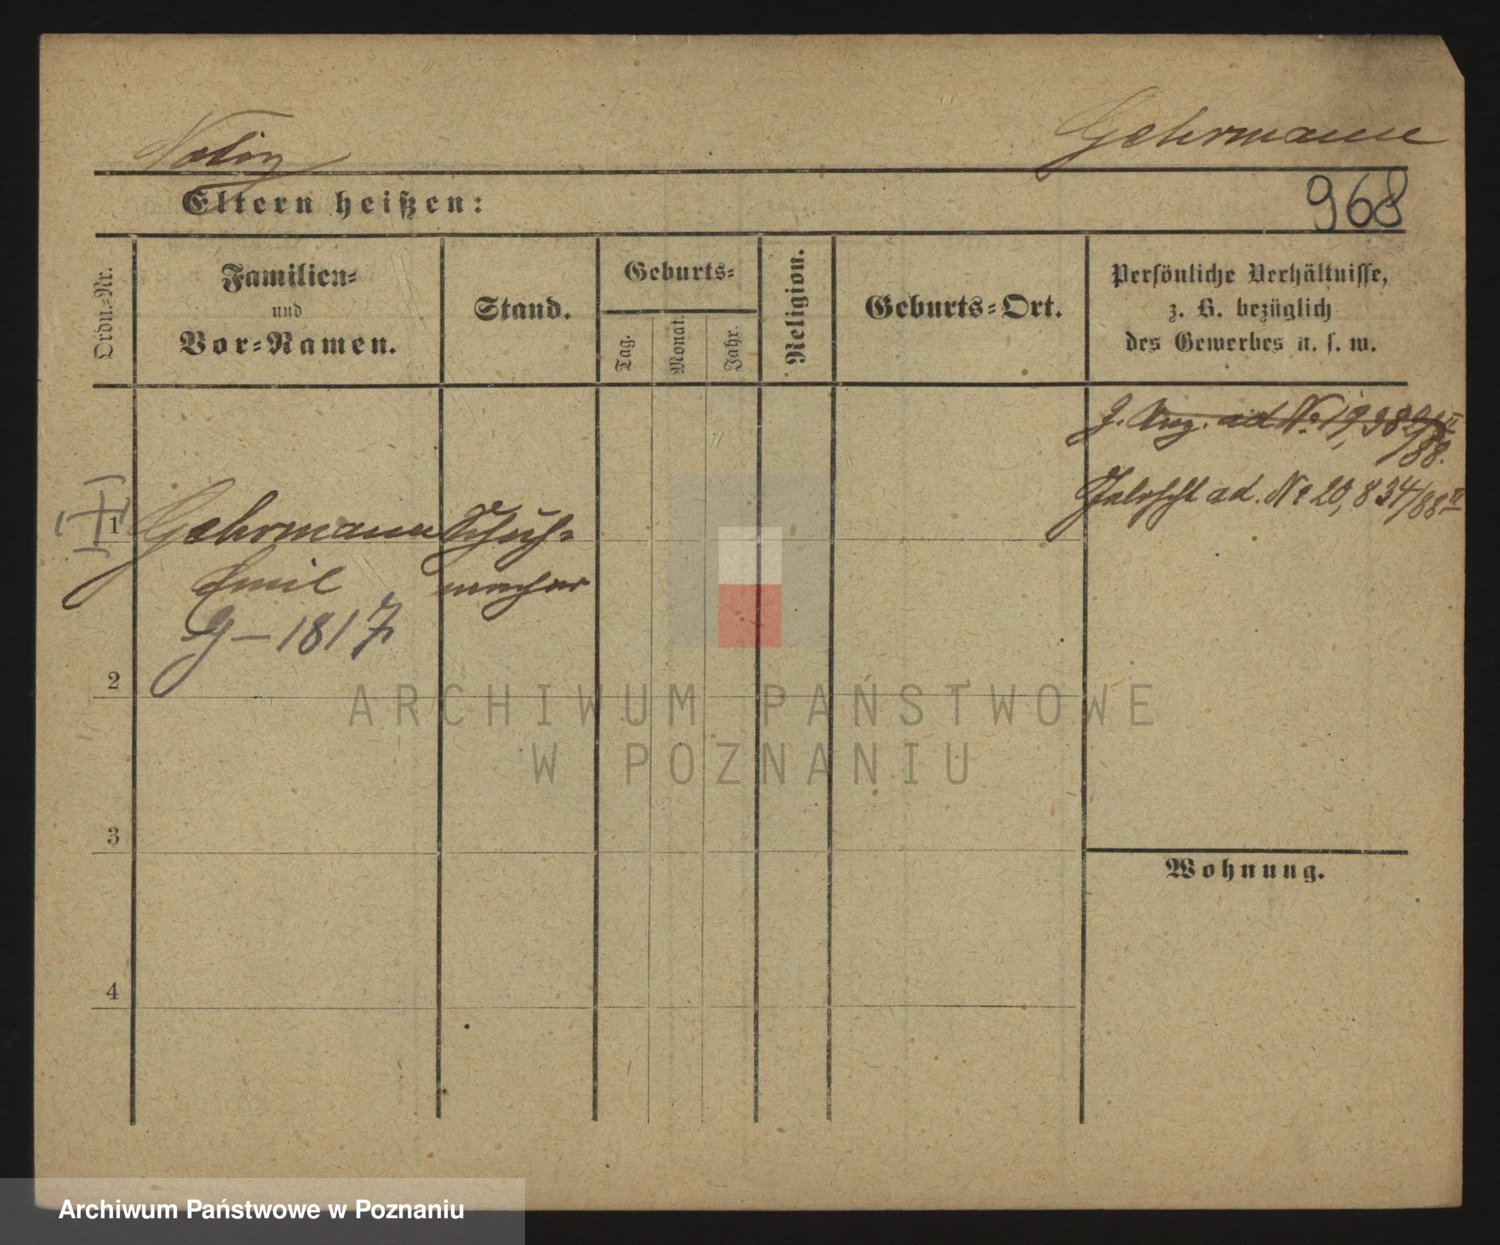 Notiz
Gehrmann
Eltern heißen:
968
Ordn.-Nr.
Familien-
und
Vor-Namen.
Stand.
Geburts-
Tag.
Monat.
Jahr.
Religion.
Geburts-Ort.
Persönliche Verhältnisse,
z. B. bezüglich
des Gewerbes u. s. w.
ad No 19,
88.
ad. No 20,834/88 II
1
Gehrmann
Schuh-
Emil
macher
G-1817
2
3
4
Wohnung.
ARCHIWUM PAŃSTWOWE
W POZNANIU
Archiwum Państwowe w Poznaniu